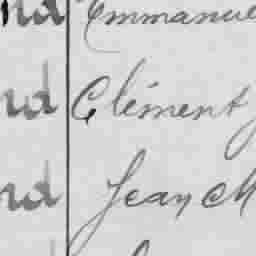 nd Emmanue
nd Clément
nd Jean M